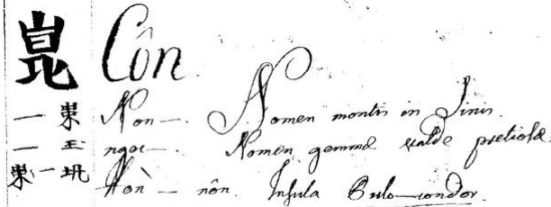 崑 Côn.
Non —. Nomen montis in Sinis.
一 玉 ngoc —. Nomen gemmæ valde pretiosæ.
Hòn — nôn. Insula Pulo-condor.